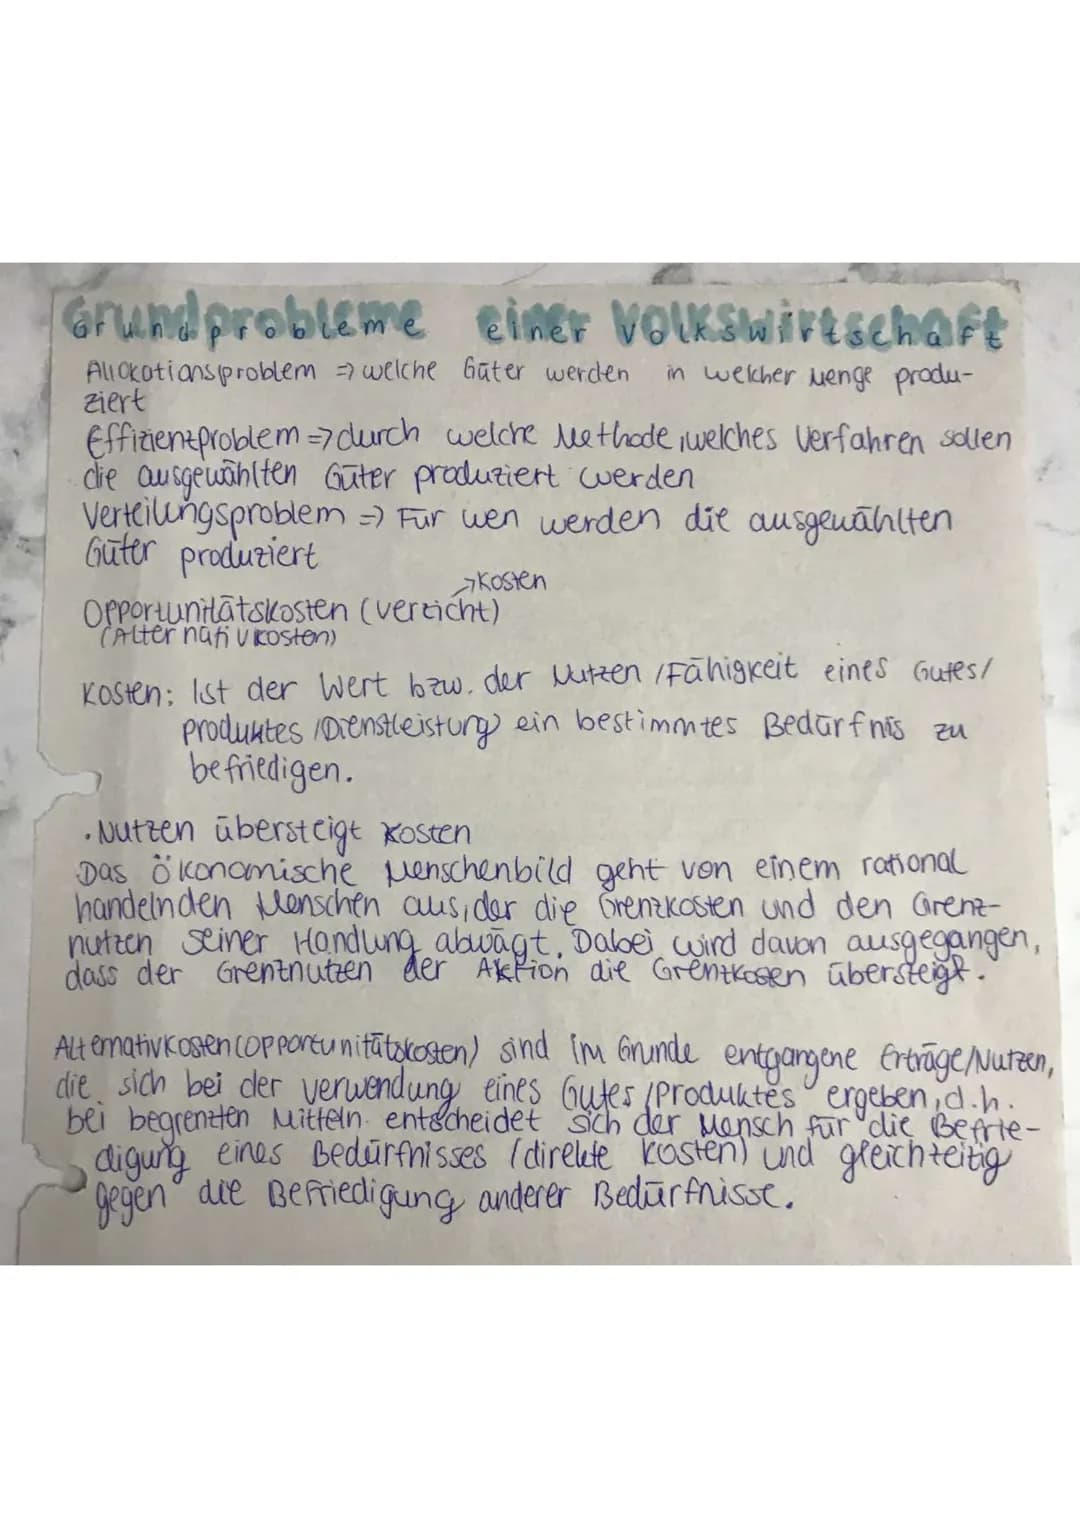 Grundprobleme einer Volkswirtschaft
Allokationsproblem => welche Güter werden in welcher Menge produ-
ziert
Effizienzproblem => durch welche Methode, welches Verfahren sollen
die ausgewählten Güter produziert werden
Verteilungsproblem => Für wen werden die ausgewählten
Güter produziert
→Kosten
Opportunitätskosten (verzicht)
(Alternativkosten)
Kosten: Ist der Wert bzw. der Nutzen /Fähigkeit eines Gutes/
produktes /Dienstleistung ein bestimmtes Bedürfnis zu
befriedigen.
• Nutzen übersteigt Kosten
Das ökonomische Menschenbild geht von einem rational
handelnden Menschen aus, der die Grenzkosten und den Grenz-
nutzen seiner Handlung abwägt. Dabei wird davon ausgegangen,
dass der Grenznutzen der Aktion die Grenzkosen übersteigt.
Alternativkosten (opportunitätskosten) sind im Grunde entgangene Erträge/Nutzen,
die sich bei der verwendung eines Gutes /Produktes ergeben, d.h.
bei begrenzten Mitteln entscheidet sich der Mensch für die Befrie-
digung eines Bedürfnisses (direkte Kosten) und gleichzeitig
gegen die Befriedigung anderer Bedürfnisse.